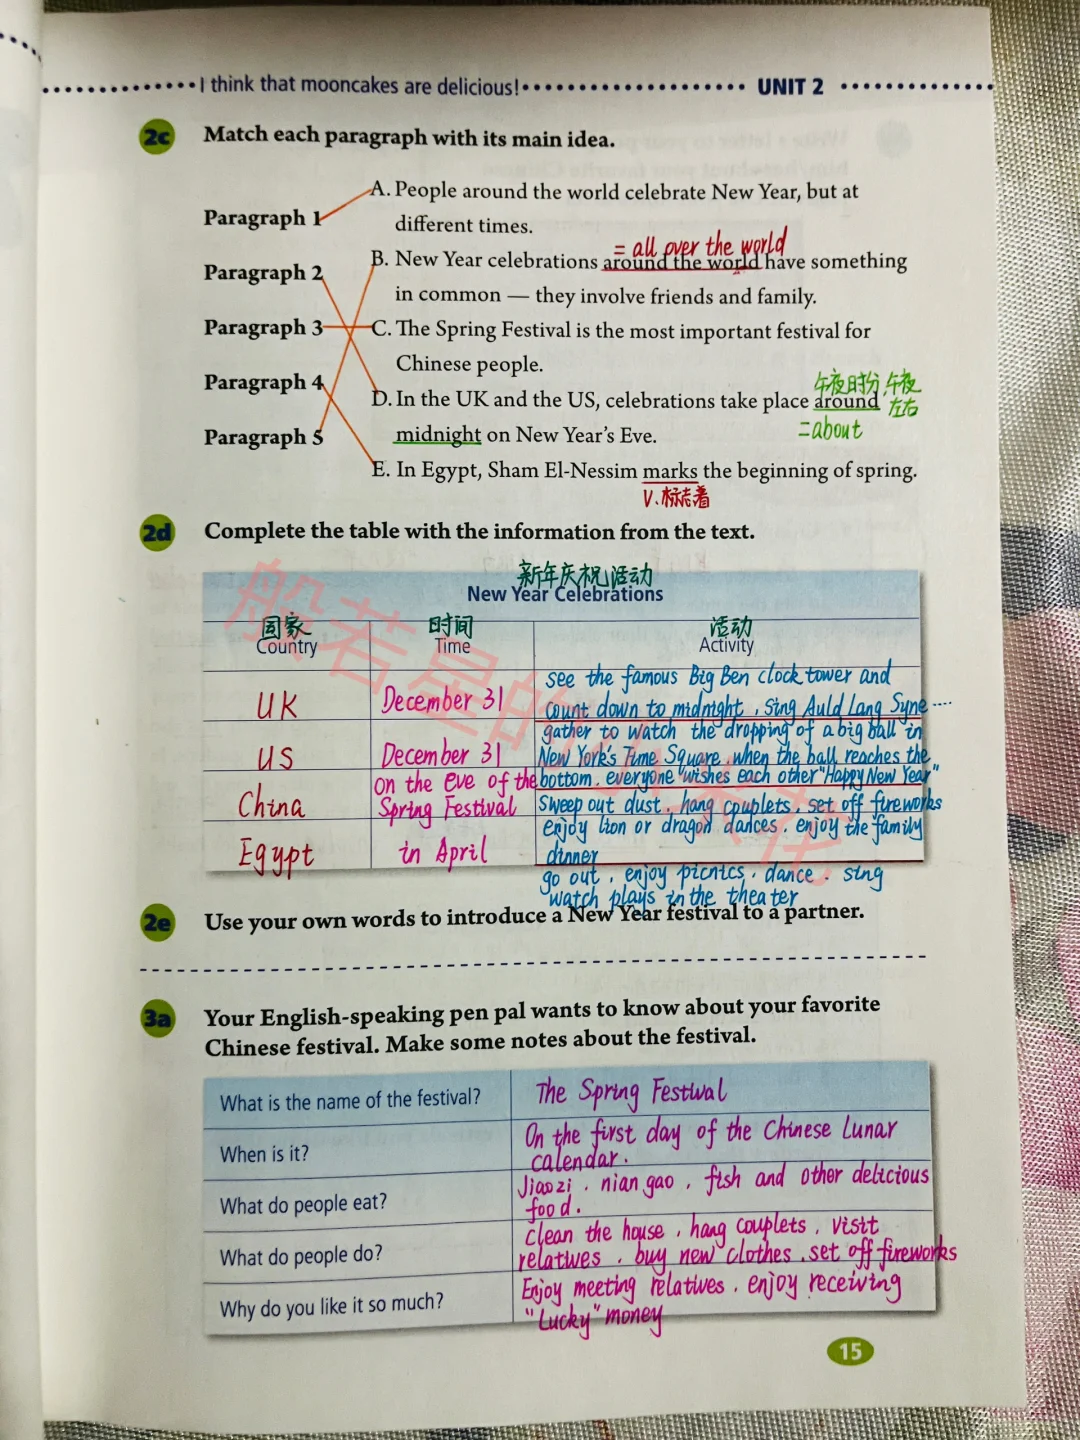 I think that mooncakes are delicious! UNIT 2
2c Match each paragraph with its main idea.
A. People around the world celebrate New Year, but at
Paragraph 1
different times.
= all over the world
B. New Year celebrations around the world have something
Paragraph 2
in common — they involve friends and family.
Paragraph 3
C. The Spring Festival is the most important festival for
Chinese people.
Paragraph 4
午夜时分,午夜
左右
D. In the UK and the US, celebrations take place around
=about
Paragraph 5
midnight on New Year's Eve.
E. In Egypt, Sham El-Nessim marks the beginning of spring.
V.标志着
2d Complete the table with the information from the text.
新年庆祝活动
New Year Celebrations
国家 时间 活动
Country Time Activity
see the famous Big Ben clock tower and
UK December 31 count down to midnight, sing Auld Lang Syne ....
gather to watch the dropping of a big ball in
US December 31 New York's Time Square, when the ball reaches the
on the eve of the bottom, everyone wishes each other "Happy New Year"
China Spring Festival Sweep out dust, hang couplets, set off fireworks
enjoy lion or dragon dances, enjoy the family
Egypt in April dinner
go out, enjoy picnics, dance, sing
watch plays in the theater
2e Use your own words to introduce a New Year festival to a partner.
3a Your English-speaking pen pal wants to know about your favorite
Chinese festival. Make some notes about the festival.
What is the name of the festival? The Spring Festival
When is it? On the first day of the Chinese Lunar
calendar.
What do people eat? Jiaozi, nian gao, fish and other delicious
food.
What do people do? clean the house, hang couplets, visit
relatives, buy new clothes, set off fireworks
Why do you like it so much? Enjoy meeting relatives, enjoy receiving
"Lucky" money
15